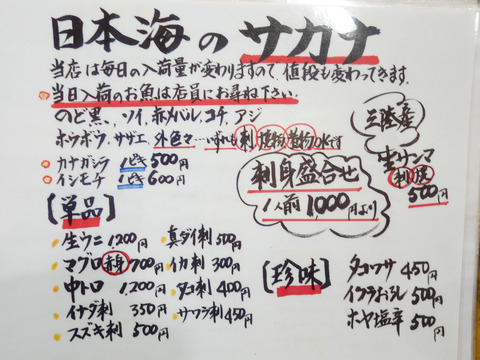 日本海のサカナ
当店は毎日の入荷量が変わりますので、値段も変わってきます。
当日入荷のお魚は店員にお尋ね下さい。
のど黒、ソイ、赤メバル、コチ、アジ
ホウボウ、サザエ、外色々…いずれも刺焼物煮物OKです
カナガシラ 1匹500円
イシモチ 1匹600円
刺身盛合せ
1人前1000円より
三陸産
生サンマ
刺焼
500円
【単品】
生ウニ 1200円
マグロ赤身 700円
中トロ 1,200円
イナダ刺 350円
スズキ刺 500円
真ダイ刺 500円
イカ刺 300円
タコ刺 400円
サワラ刺 450円
【珍味】
タコワサ 450円
イクラおろし 500円
ホヤ塩辛 500円